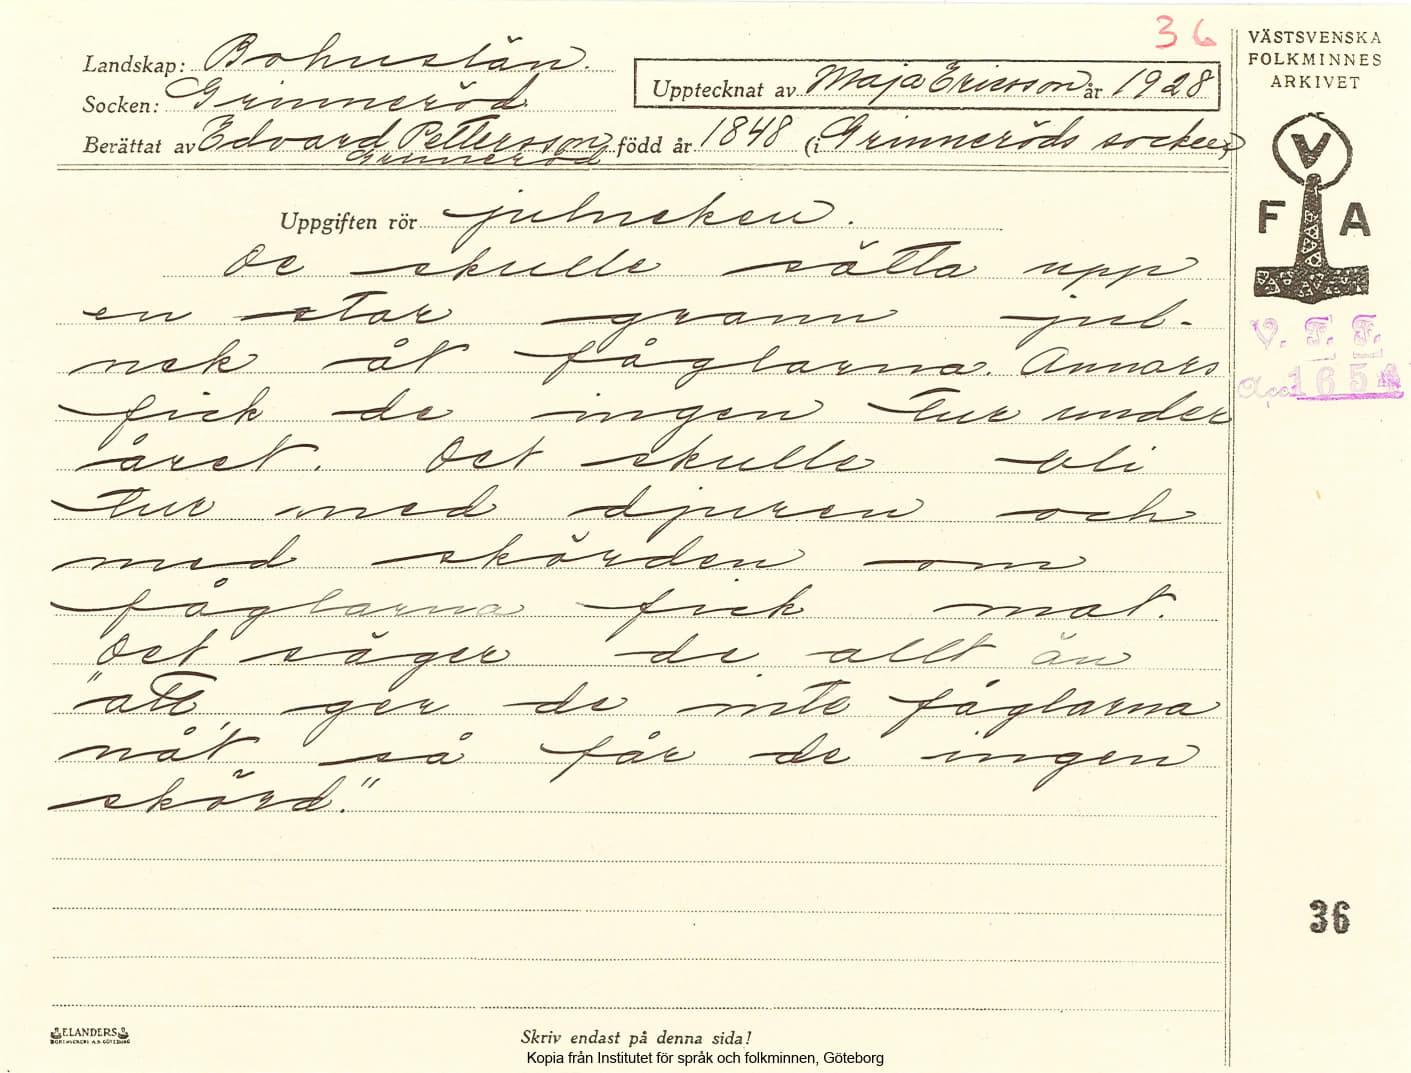 36
Landskap: Bohuslän.
Socken: Grinneröd
Upptecknat av Maja Ericsson år 1928
Berättat av Edvard Pettersson född år 1848 (i Grinneröds socken)
Grinneröd
VÄSTSVENSKA
FOLKMINNES
ARKIVET
V
F A
V. F. F.
Acc. 1654
Uppgiften rör julneken.
De skulle sätta upp
en stor grann jul-
nek åt fåglarna. Annars
fick de ingen tur under
året. Det skulle bli
tur med djuren och
med skörden om
fåglarna fick mat.
Det säger de allt än
"att, ger de inte fåglarna
nåt så får de ingen
skörd."
36
ELANDERS
BOKTRYCKERI A.B. GÖTEBORG
Skriv endast på denna sida!
Kopia från Institutet för språk och folkminnen, Göteborg